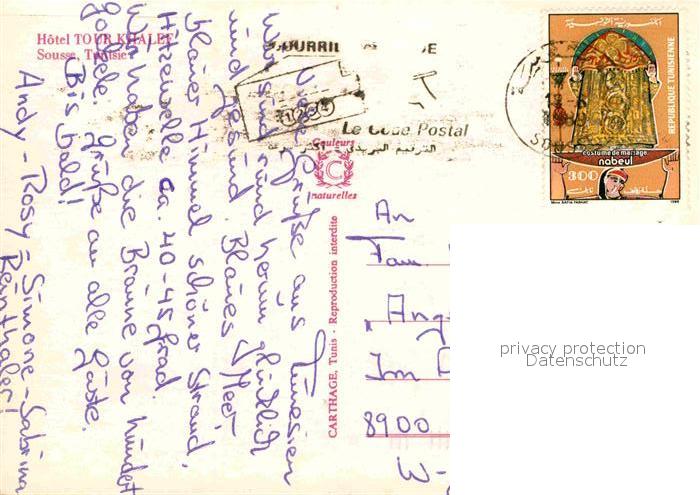 Hôtel TOUR KHALEF
Sousse, Tunisie
Grüße aus Tunesien
wir sind herum glücklich
und gesund. Blaues Meer,
blauer Himmel schöner Strand,
Hitzewelle ca. 40-45 grad.
Wir haben die Bräune von hundert
grüße an alle Gäste.
Bis bald!
Andy - Rosy - Simone - Sabrina
Reinthaler!
Le Code Postal
الترقيم البريدي
Couleurs
C
naturelles
CARTHAGE, Tunis - Reproduction interdite
REPUBLIQUE TUNISIENNE
costume de mariage
nabeul
300
An
Fam
Ang
Im
8900
W-
privacy protection
Datenschutz